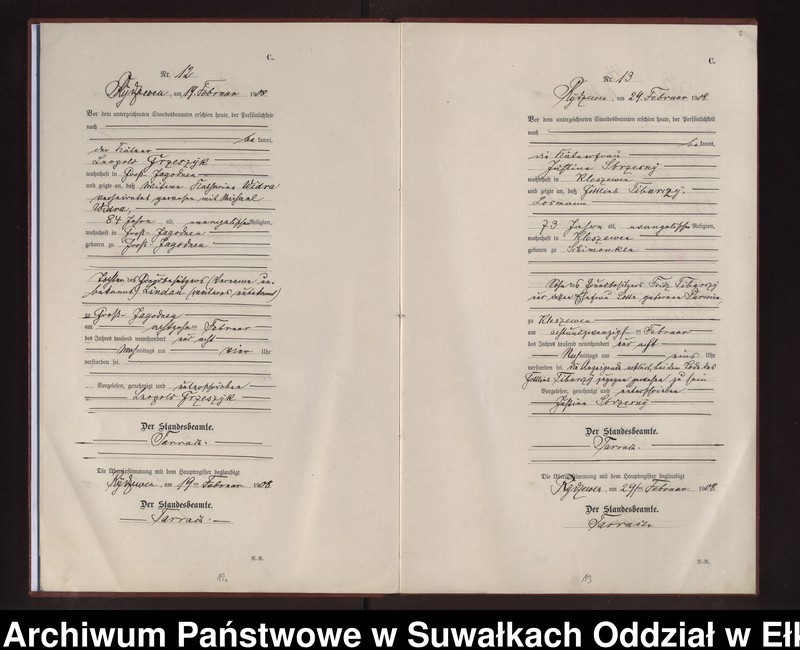 C.
Nr. 12
Rydzewen, am 19. Februar 1908.
Vor dem unterzeichneten Standesbeamten erschien heute, der Persönlichkeit
nach
be kannt,
der Kätner
Leopold Grzeszyk
wohnhaft in Groß Jagodnen
und zeigte an, daß Witwe Katharine Widra
verheiratet gewesen mit Michael
Widra,
84 Jahre alt, evangelischer Religion,
wohnhaft in Groß-Jagodnen
geboren zu Groß-Jagodnen
Tochter des (Vorname un-
bekannt) Lindau (weiteres unbekannt)
zu Groß-Jagodnen
am achtzehnten Februar
des Jahres tausend neunhundert und acht
Nachmittags um vier Uhr
verstorben sei.
Vorgelesen, genehmigt und unterschrieben
Leopold Grzeszyk
Der Standesbeamte.
Tarrach.
Die Übereinstimmung mit dem Hauptregister beglaubigt
Rydzewen, am 19ten Februar 1908.
Der Standesbeamte.
Tarrach.
R.-R.
12.
C.
Nr. 13
Rydzewen, am 29. Februar 1908.
Vor dem unterzeichneten Standesbeamten erschien heute, der Persönlichkeit
nach
be kannt,
die Kätnerfrau
Justine
wohnhaft in Kleszewen
und zeigte an, daß Gottlieb Tiburzy,
Losmann
73 Jahre alt, evangelischer Religion,
wohnhaft in Kleszewen
geboren zu Schimonken
Sohn des Fritz Tiburzy
und dessen Ehefrau Lotte geborenen
zu Kleszewen
am achtundzwanzigsten Februar
des Jahres tausend neunhundert und acht
Nachmittags um eins Uhr
verstorben sei. Die Anzeigende erklärt, bei dem Tode des
Gottlieb Tiburzy zugegen gewesen zu sein
Vorgelesen, genehmigt und unterschrieben
Justine
Der Standesbeamte.
Tarrach.
Die Übereinstimmung mit dem Hauptregister beglaubigt
Rydzewen, am 29ten Februar 1908.
Der Standesbeamte.
Tarrach
R.-R.
13
Archiwum Państwowe w Suwałkach Oddział w Ełk